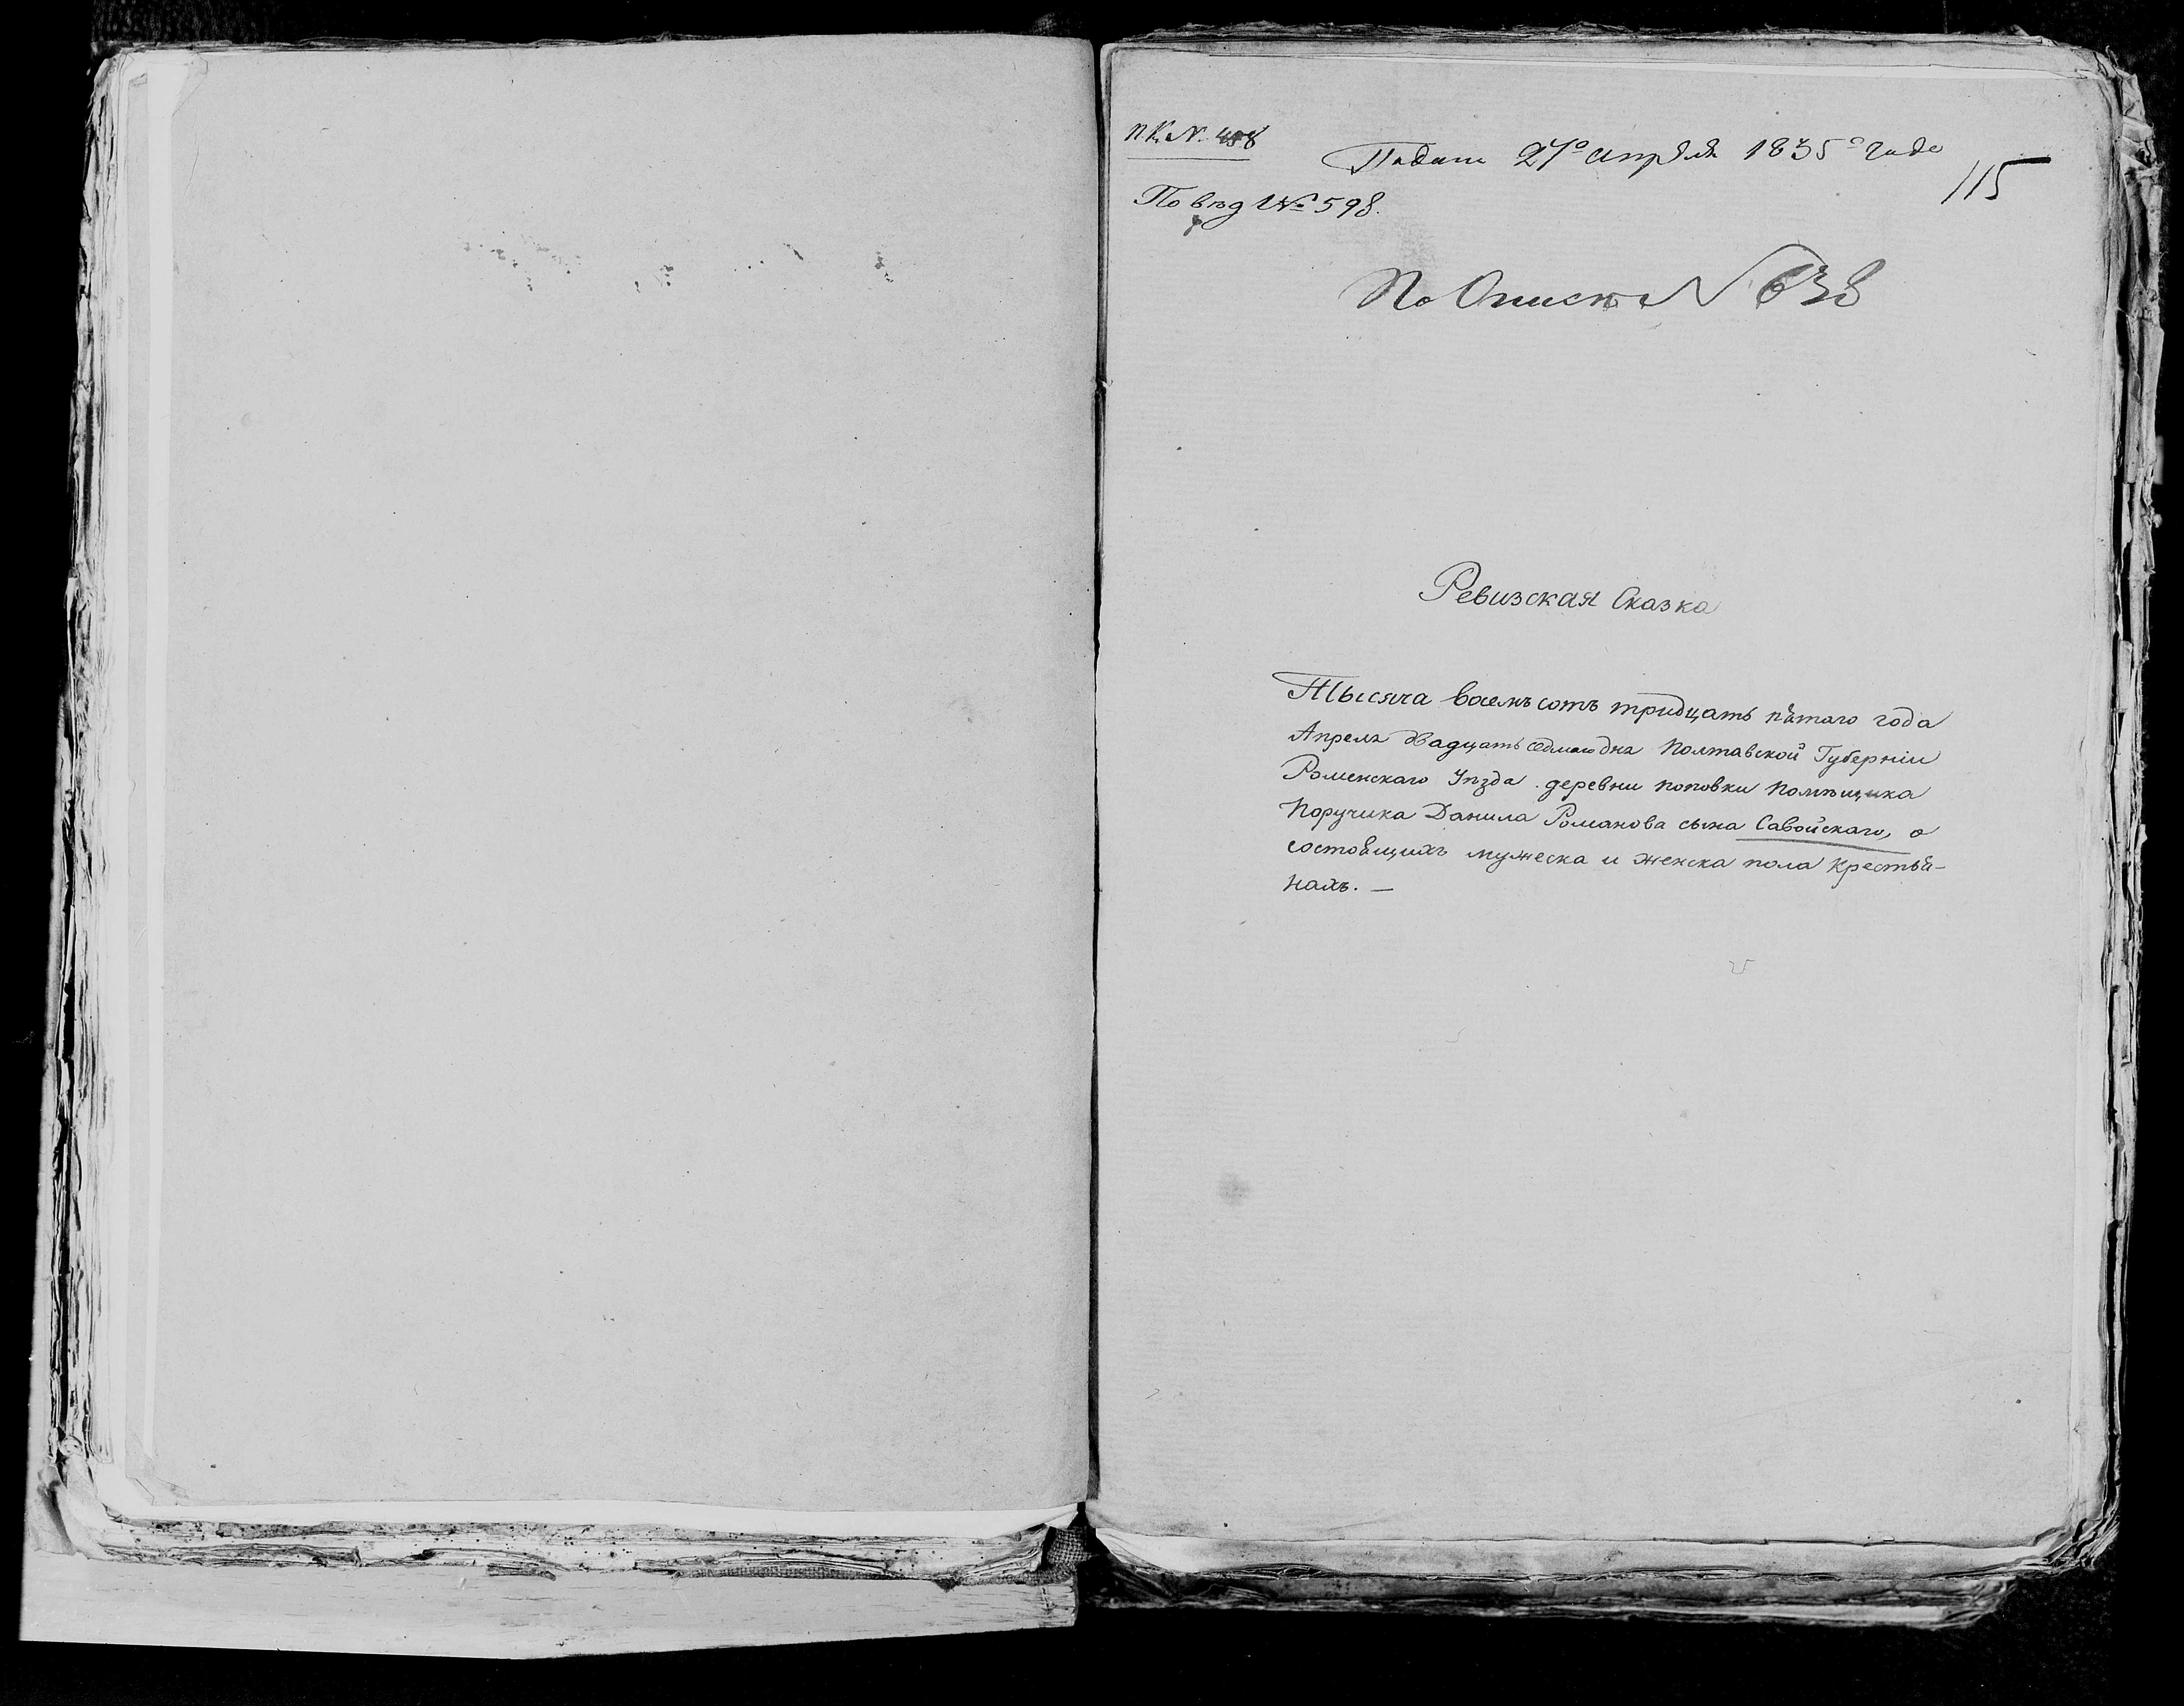 П.К. №. 488
Подана 27го апреля 1835го года
115
По вѣд №: 598.
По Описи № 638
Ревизская Сказка
Тысяча восемъ сотъ тридцать пятаго года
Апреля двадцать седмаго дня Полтавской Губерніи
Роменскаго Уѣзда. деревни поповки помѣщика
Поручика Данила Романова сына Савойскаго, о
состоящихъ мужеска и женска пола крестья-
нахъ. —